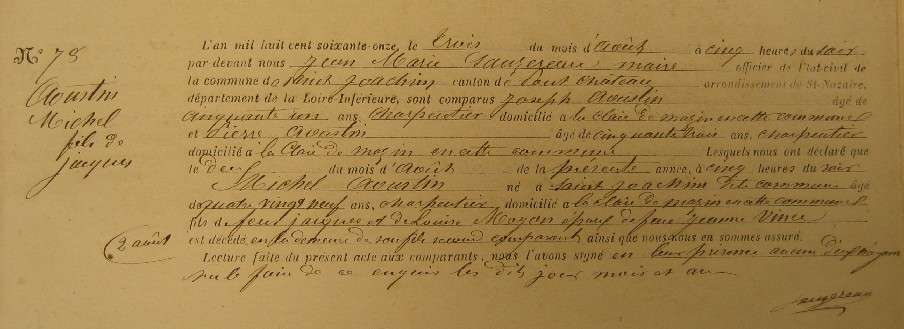 N° 78
Aoustin
Michel
fils de
jacques
2 août
L'an mil huit cent soixante-onze, le trois du mois d'Août à cinq heures du soir
par devant nous Jean Marie maire officier de l'état-civil de
la commune de Saint Joachim canton de Pont Château arrondissement de St-Nazaire,
département de la Loire-Inférieure, sont comparus Joseph Aoustin âgé de
cinquante un ans, Charpentier domicilié à la Clair de mazin en cette commune
et Pierre Aoustin âgé de cinquante trois ans, charpentier
domicilié à la Clair de mazin en cette commune Lesquels nous ont déclaré que
le deux du mois d'Août de la présente année, à cinq heures du soir
Michel Aoustin né à Saint Joachim dite commune âgé
de quatre vingt neuf ans, charpentier, domicilié à la Clair de mazin en cette commune
fils de feus jacques et de Louise Moyon époux de feue Jeanne Vince
est décédé, en la demeure de son fils second comparant ainsi que nous nous en sommes assuré.
Lecture faite du présent acte aux comparants, nous l'avons signé en leur présence aucun d'eux
su le faire de ce enquis les dits jour mois et an